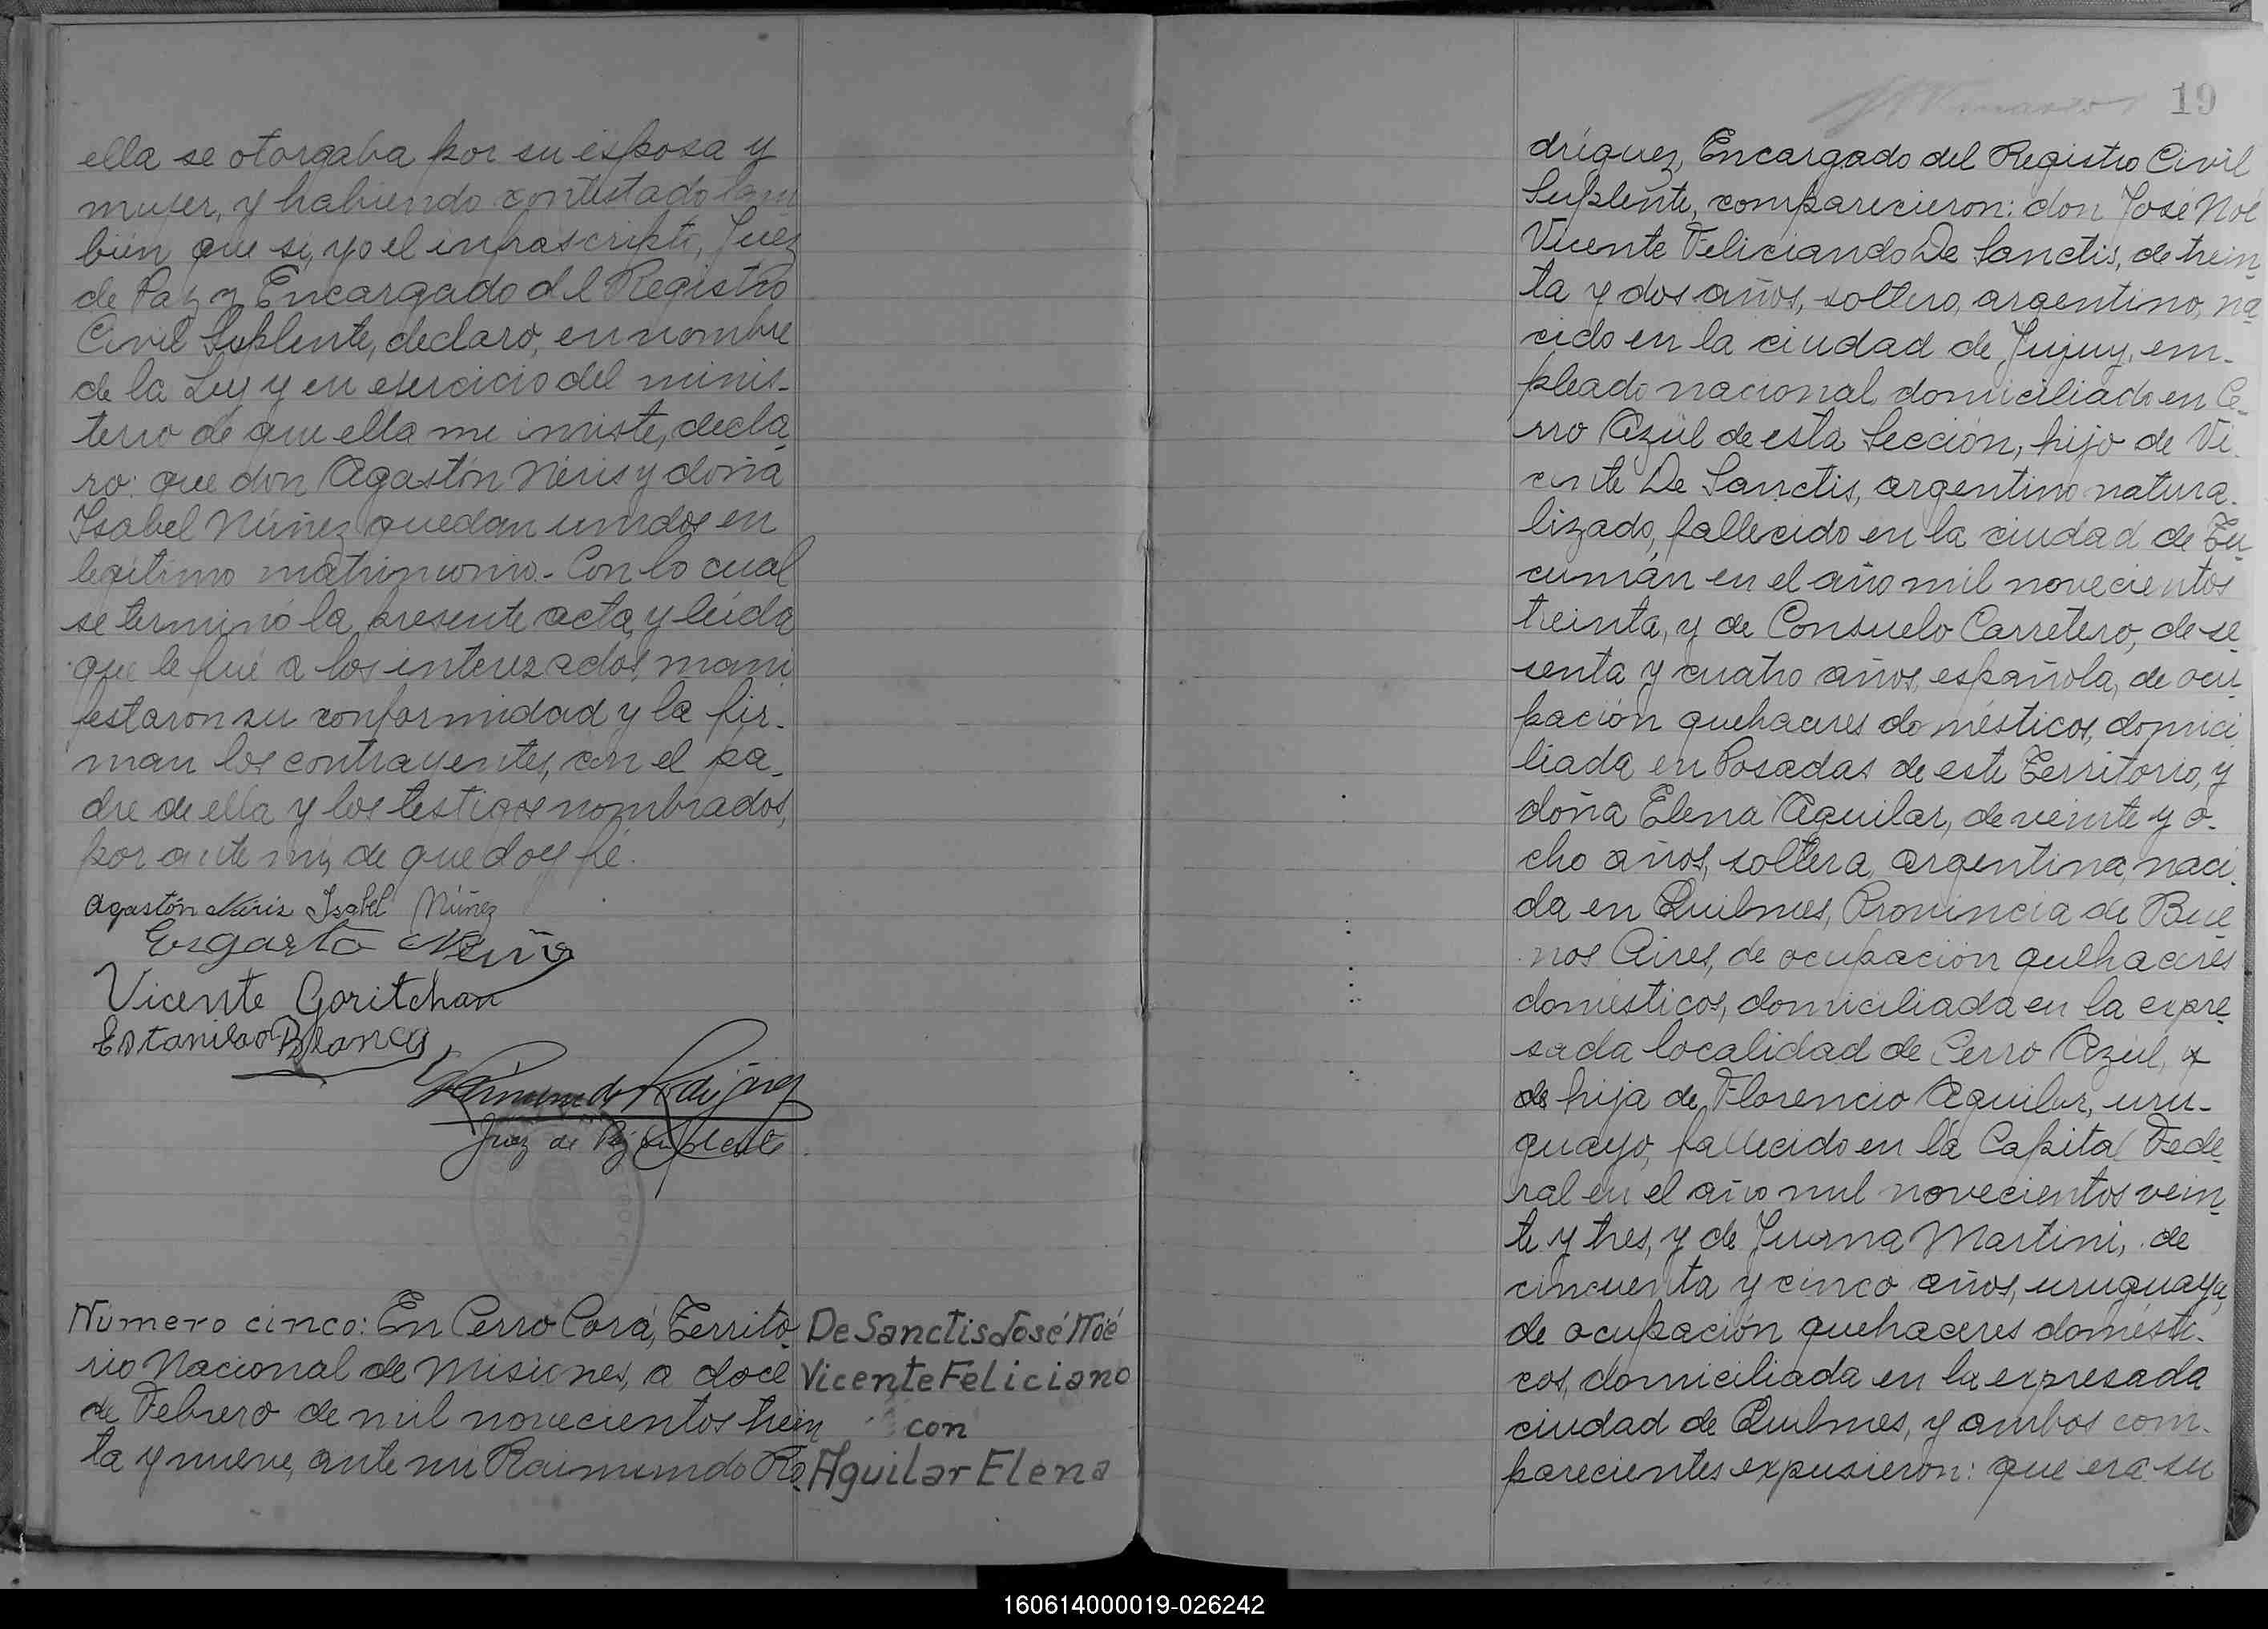 ella se otorgaba por su esposa y
mujer, y habiendo contestado tam
bién que si, yo el infrascripto, Juez
de Paz y Encargado del Registro
Civil Suplente, declaro, en nombre
de la Ley y en ejercicio del minis-
terio de que ella me inviste, decla
ro: que don Agastón Neris y doña
Isabel Núñez quedan unidos en
legítimo matrimonio. Con lo cual
se terminó la presente acta, y leída
que le fué a los interezados, mani
festaron su conformidad y la fir-
man los contrayentes, con el pa-
dre de ella y los testigos nombrados,
por ante mi, de que doy fé.
Agastón Neris Isabel Núñez
Vicente Goritchan
Estanilao Blanco
Raimundo Rodríguez
Juez de Paz Suplente
Numero cinco: En Cerro Corá, Territo
rio Nacional de Misiones, a doce
de Febrero de mil novecientos trein
ta y nueve, ante mi Raimundo Ro
De Sanctis José Noé
Vicente Feliciano
con
Aguilar Elena
19
dríguez, Encargado del Registro Civil
Suplente, comparecieron: don José Noé
Vicente Feliciando De Sanctis, de trein
ta y dos años, soltero, argentino, na
cido en la ciudad de Jujuy, em-
pleado nacional domiciliado en Ce-
rro Azúl de esta Sección, hijo de Vi
cente De Sanctis, argentino natura-
lizado, fallecido en la ciudad de Tu
cumán en el año mil novecientos
treinta, y de Consuelo Carretero, de se
senta y cuatro años, española, de ocu
pación quehaceres domésticos, domici
liada en Posadas de este Territorio, y
doña Elena Aguilar, de veinte y o-
cho años, soltera, argentina, naci
da en Quilmes, Provincia de Bue
nos Aires, de ocupación quehaceres
domésticos, domiciliada en la expre
sada localidad de Cerro Azúl,
hija de Florencio Aguilar, uru-
guayo, fallecido en la Capital Fede
ral en el año mil novecientos vein
te y tres, y de Juana Martini, de
cincuenta y cinco años, uruguaya,
de ocupación quehaceres domésti-
cos, domiciliada en la expresada
ciudad de Quilmes, y ambos com-
parecientes expusieron: que era su
160614000019-026242